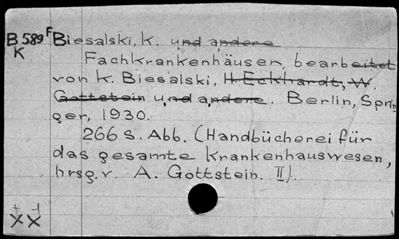 B 589 F Biesalski, K. und andere
K
Fachkrankenhäuser, bearbeitet
von K. Biesalski, H. Eckhardt, W.
Gottstein und andere. Berlin, Sprin-
ger, 1930.
266 S. Abb. (Handbücherei für
das gesamte Krankenhauswesen,
hrsg. v. A. Gottstein. II).
XX